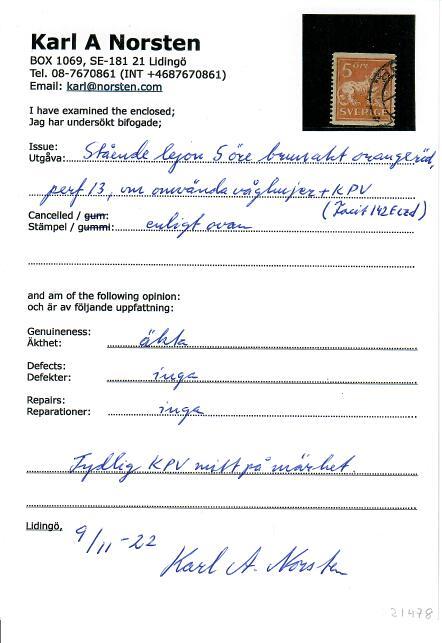 Karl A Norsten
BOX 1069, SE-181 21 Lidingö
Tel. 08-7670861 (INT +4687670861)
Email: karl@norsten.com
5 ÖRE
SVERIGE
I have examined the enclosed;
Jag har undersökt bifogade;
Issue:
Utgåva: Stående lejon 5 öre brunakt orangeröd,
perf 13, vm omvända våglinjer + KPV
(Facit 142Ecxz)
Cancelled / gum:
Stämpel / gummi: enligt ovan
and am of the following opinion:
och är av följande uppfattning:
Genuineness:
Äkthet: äkta
Defects:
Defekter: inga
Repairs:
Reparationer: inga
Tydlig KPV mitt på märket.
Lidingö, 9/11-22
Karl A. Norsten
21478